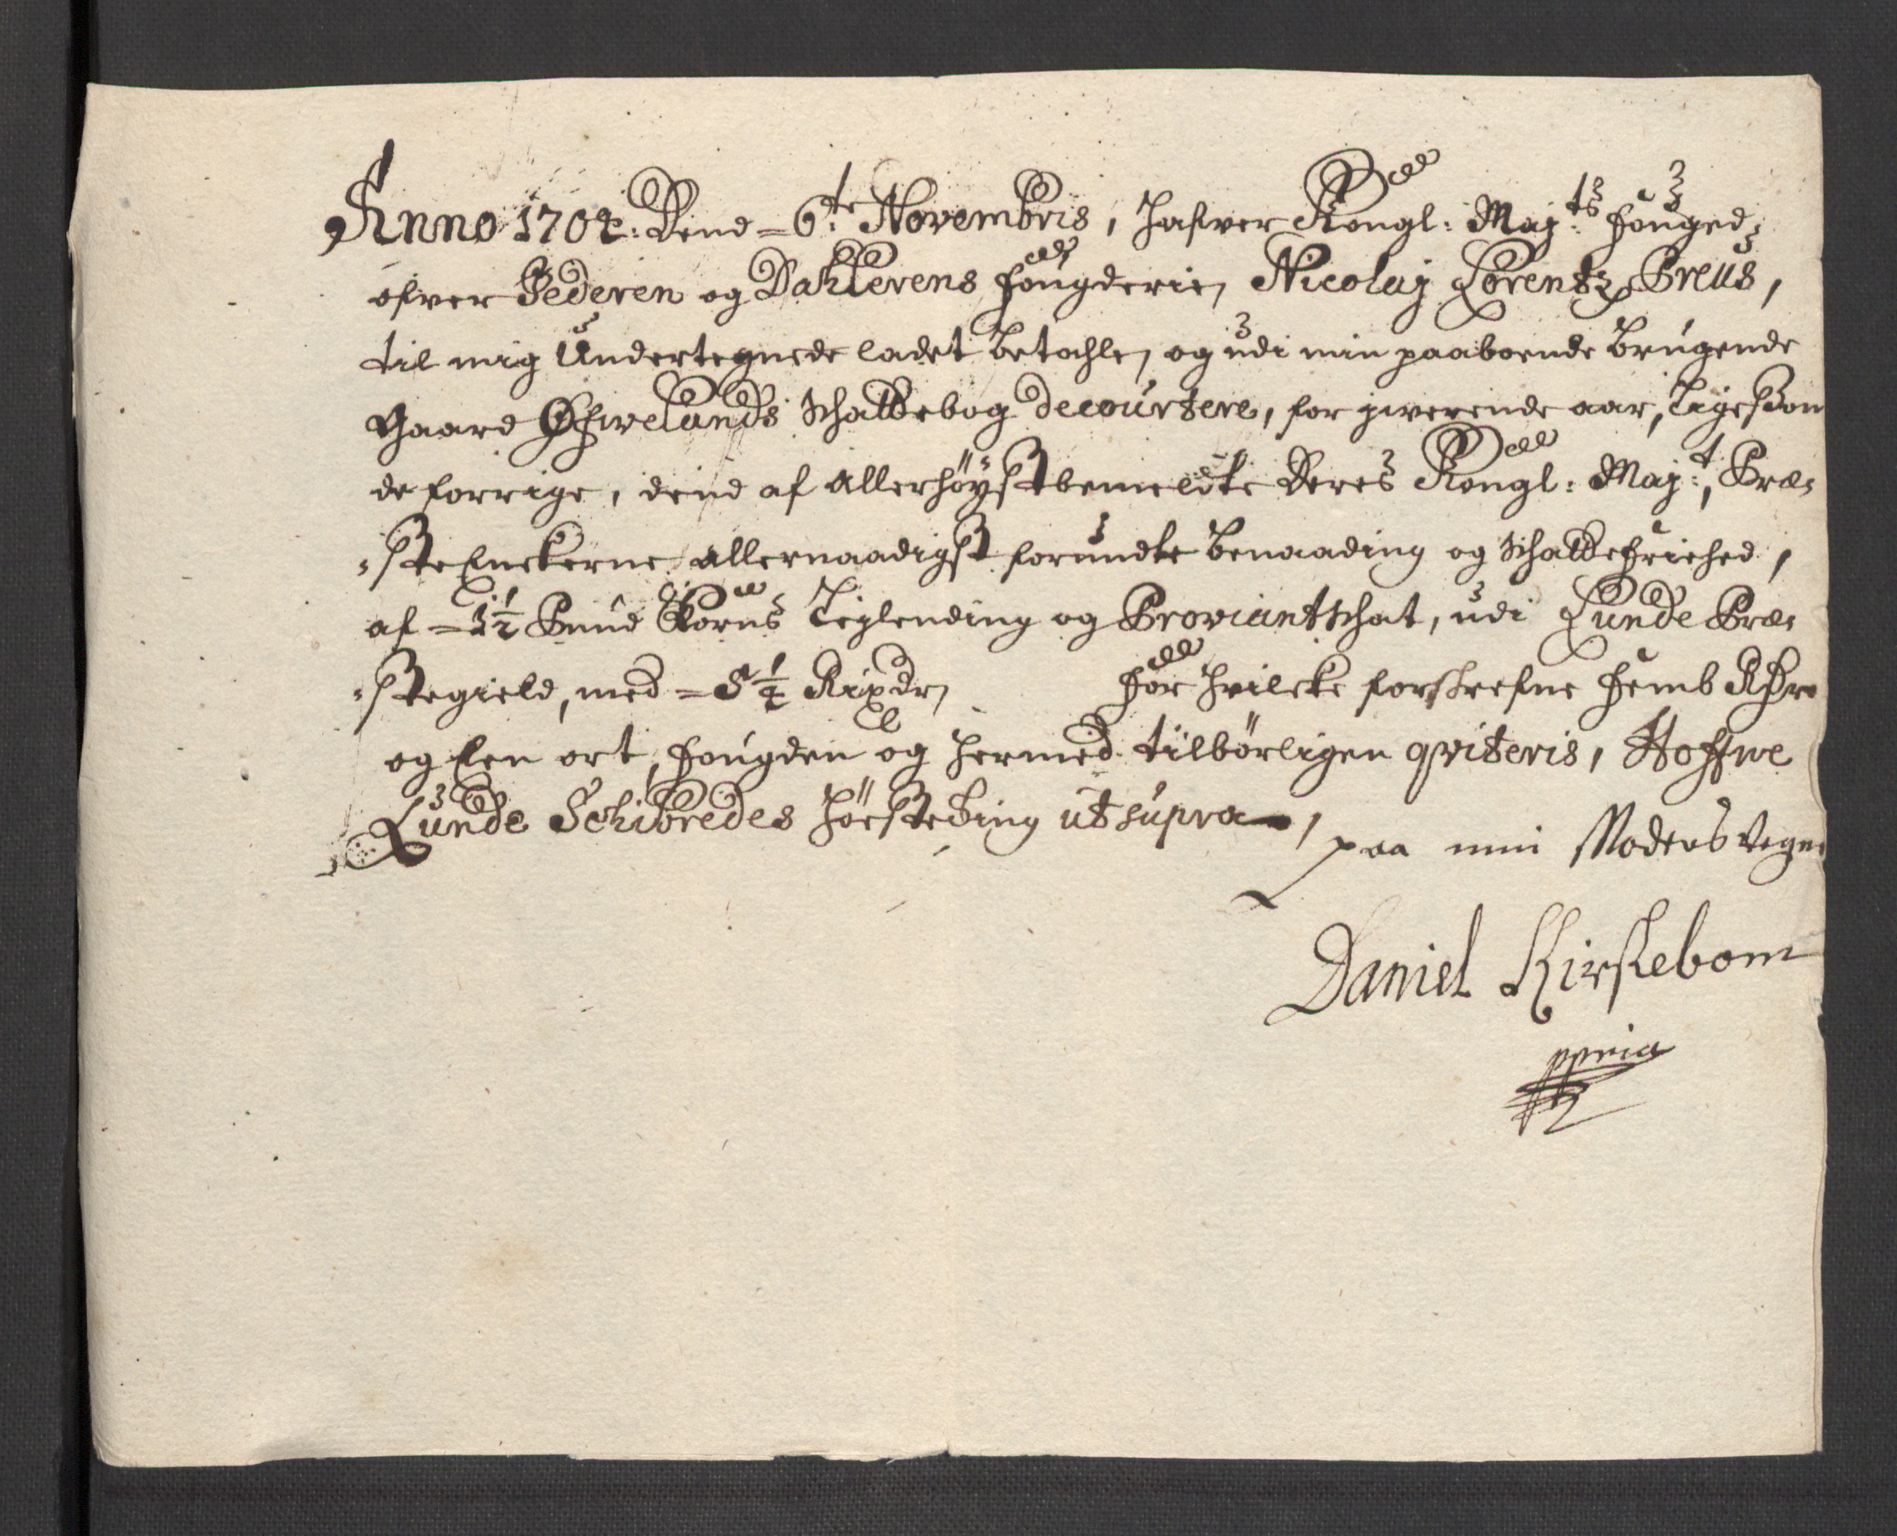 Anno 1704: Dend = 6.te Novembris, hafver Kongl: Maj:ts fouged
ofver Jederen og Dahlerens fougderie, Nicolaj Lorentz Preus,
til mig Undertegnede ladet betahle, og udi min paaboende brugende
Gaard Øfwelands schattebog decourtere, for jwerende aar, ligesom
de forrige, dend af allerhöyst bemeldte Deres Kongl: Maj:t, Præ-
-ste Enckerne allernaadigst forundte benaading og schatte friehed,
af = 1½ Pund Korns Leylending og Proviantschat, udi Lunde Præ-
-stegield, med = 5¼ Rixdr, for hvilcke forskrefne femb Rdr
og Een ort, fougden og hermed tilbörligen qviteris, Hofwe
Lunde Schibredes höste ting ut supra,
paa min Moders vegne
Daniel Kirkebom
mpria